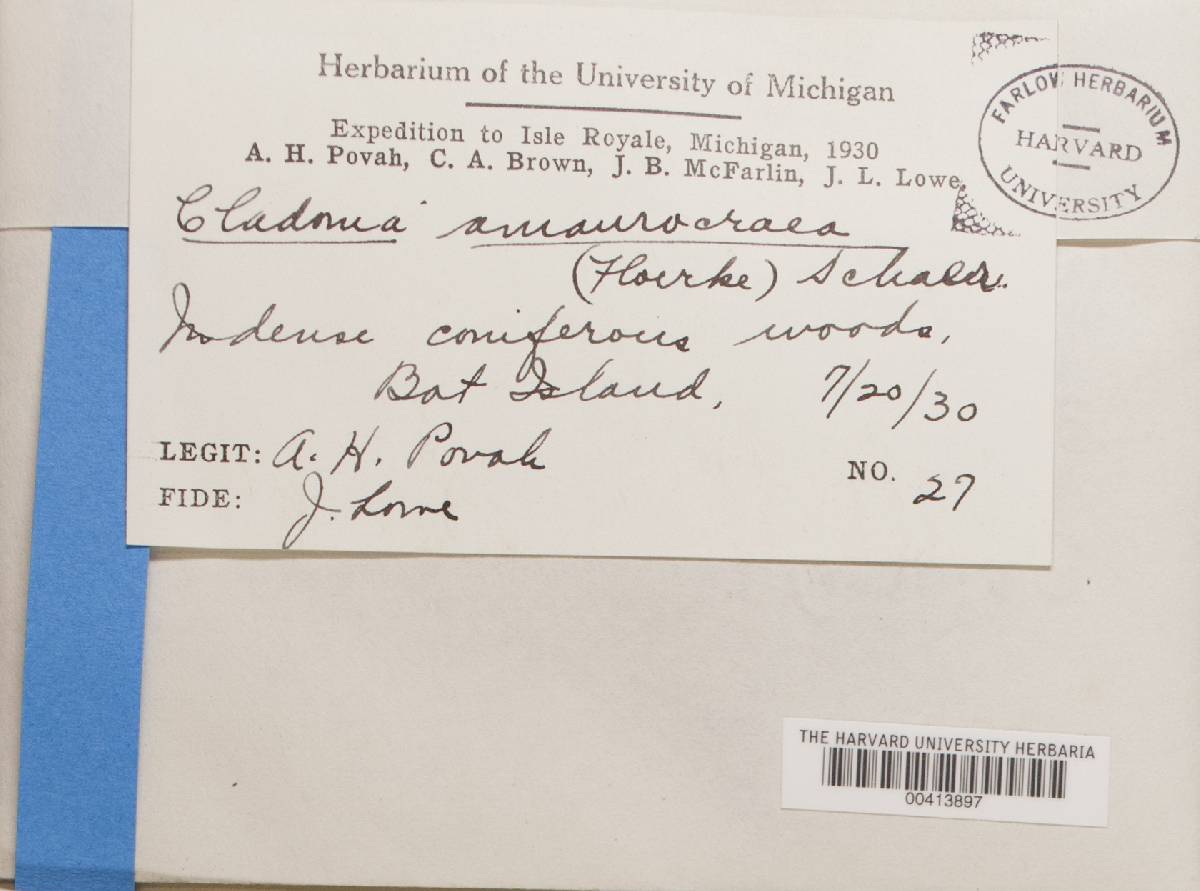 Herbarium of the University of Michigan
Expedition to Isle Royale, Michigan, 1930
A. H. Povah, C. A. Brown, J. B. McFarlin, J. L. Lowe.
FARLOW HERBARIUM
HARVARD
UNIVERSITY
Cladonia amaurocraea
(Floerke) Schaer.
In dense coniferous woods,
Bat Island, 7/20/30
LEGIT: A. H. Povah
NO. 27
FIDE: J. Lowe
THE HARVARD UNIVERSITY HERBARIA
00413897